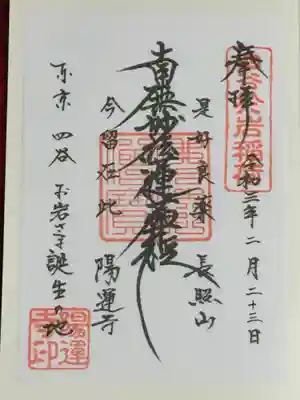 奉拝
令和三年二月二十三日
長照山
陽運寺
是好良薬
南無妙法蓮華経
今留在此
東京 四谷 お岩さま誕生の地
陽運寺印